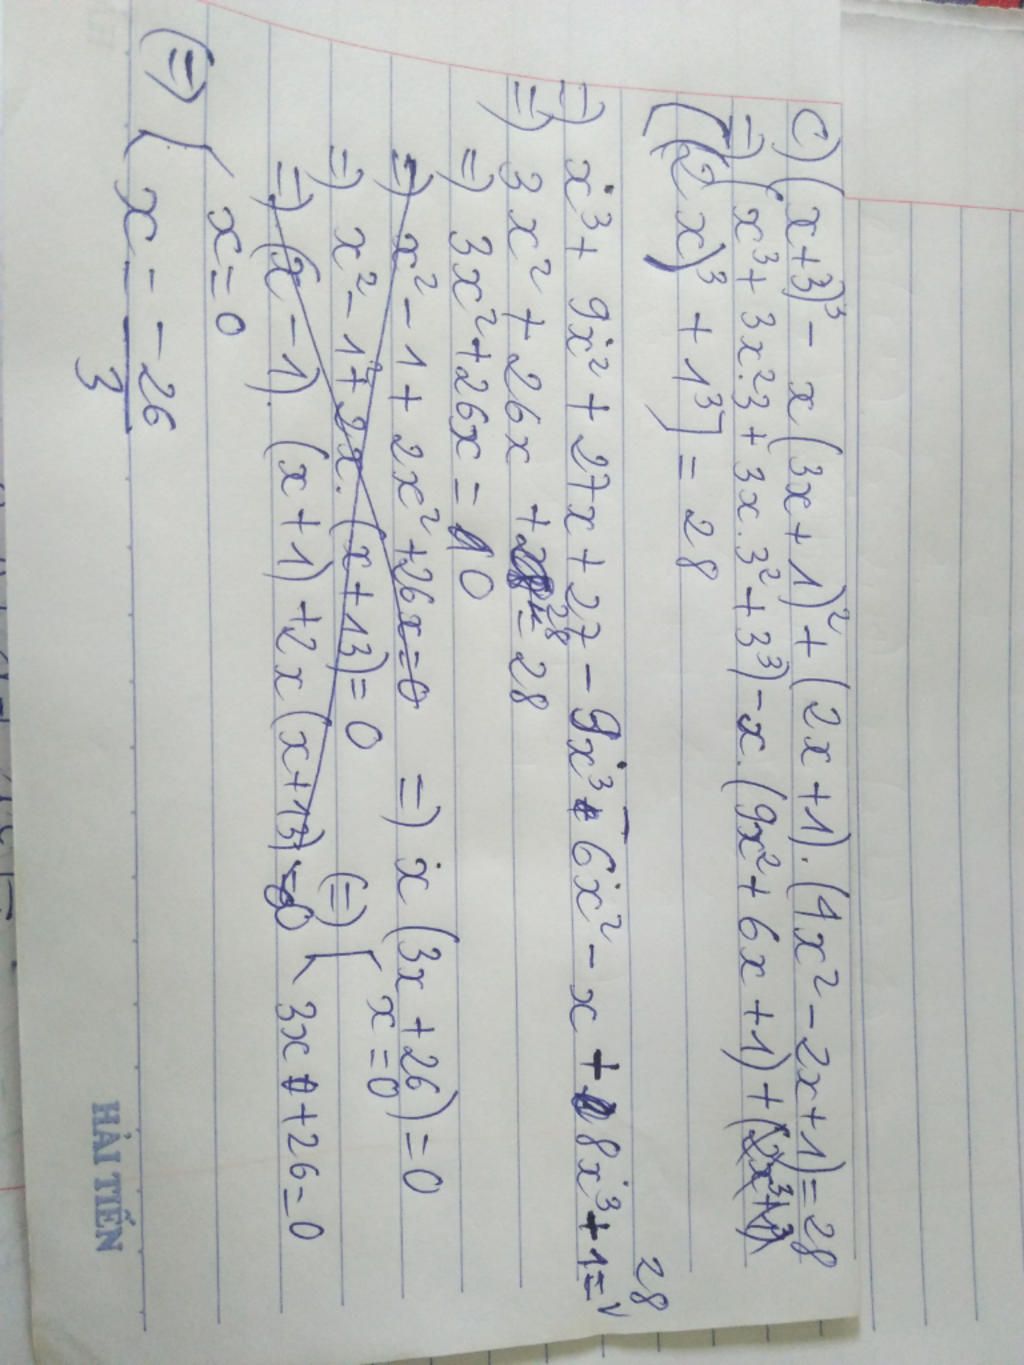 c) (x+3)³ - x(3x+1)² + (2x+1).(4x²-2x+1)=28
=) (x³+3x².3+3x.3²+3³)-x.(9x²+6x+1)+
[(2x)³+1³]=28
=) x³+9x²+27x+27-9x³-6x²-x+8x³+1=28
=) 3x²+26x+28=28
=) 3x²+26x=0
=) x²-1+2x²+26x=0 =) x(3x+26)=0
=) x²-1²+2x.(x+13)=0 (=) x=0
=) (x-1).(x+1)+2x(x+13)=0 3x+26=0
(=) x=0
x=-26/3
HẢI TIẾN